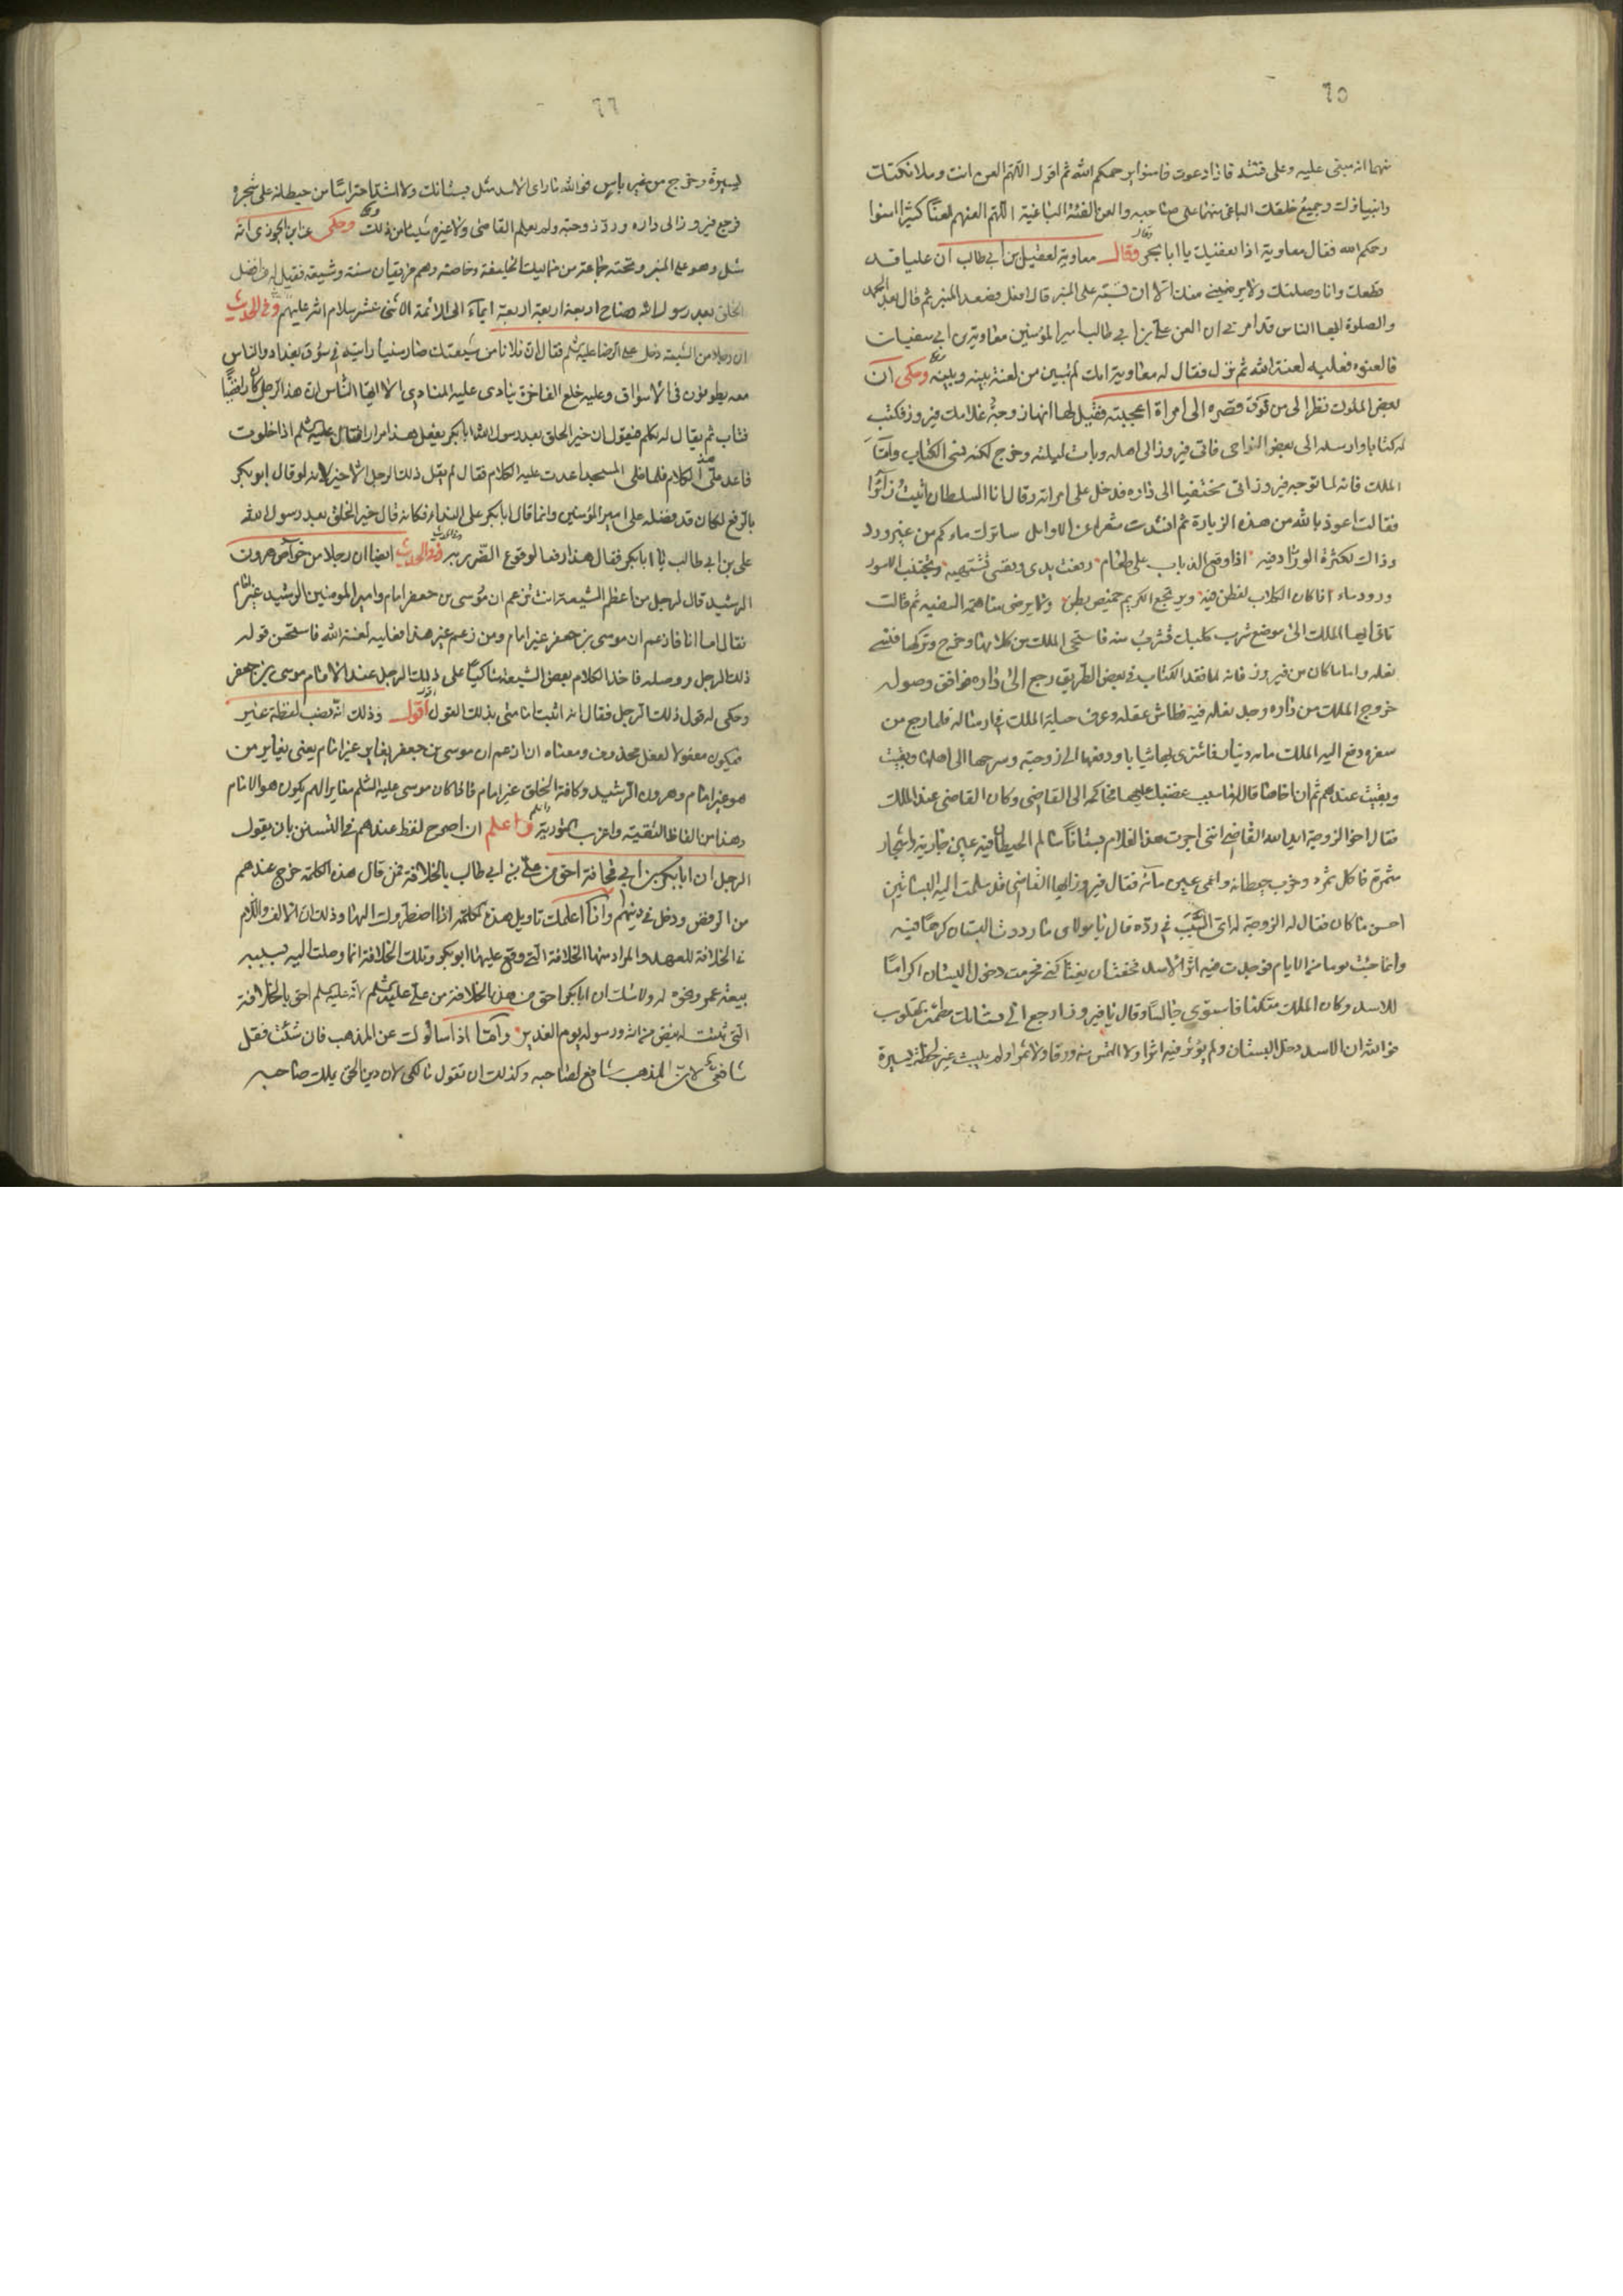 ٦٥
منهما انه مبغى عليه وعلى فئته فاذا دعوت فامنوا يرحمكم الله ثم اقول اللهم العن انت وملائكتك
وانبياؤك وجميع خلقك الباغى منهما على صاحبه والعن الفئة الباغية اللهم العنهم لعنًا كثيرا امنوا
رحمكم الله فقال معاوية اذا نعفيك يا ابا بحر وقال معاوية لعقيل بن أبي طالب ان عليا قد
قطعك وانا وصلتك ولا يرضيني منك الا ان تسبّه على المنبر قال افعل فصعد المنبر ثم قال بعد الحمد
والصلوة ايها الناس قد امرني ان العن علي بن ابي طالب امير المؤمنين معاوية بن ابي سفيان
فالعنوه فعليه لعنة الله ثم نزل فقال له معاوية انك لم تبين من لعنة بينه وبينه وحكى ان
بعض الملوك نظر الى من فوق قصره الى امراة اعجبته فقيل لها انها زوجة غلامك فيروز فكتب
له كتابا وارسله الى بعض النواحى فاتى فيروز الى اهله وبات ليلته وخرج لكنه نسى الكتاب وامّا
الملك فانه لما توجه فيروز اتى مختفيا الى داره فدخل على امراته وقال انا السلطان اتيتُ زائرًا
فقالت اعوذ بالله من هذه الزيارة ثم انشدت شعرا عن الاوايل ساترك ماءكم من غير ورد
وذاك لكثرة الورّاد فيه اذا وقع الذباب على طعام رفعت يدى ونفسى تشتهيه وتجتنب الاسود
ورود ماء اذا كان الكلاب لغطن فيه ويرتجع الكريم خميص بطن ولا يرضى مساهمة السفيه ثم قالت
تاتى ايها الملك الى موضع شرب كلبك تشربُ منه فاستحى الملك من كلامها وخرج وتركها فنسى
نعله واما ما كان من فيروز فانه لما فقد الكتاب فى بعض الطريق رجع الى داره فوافق وصوله
خروج الملك من داره وجد نعله فيه فطاش عقله وعرف حيلة الملك فى ارساله فلما رجع من
سفره دفع اليه الملك مائة دينار فاشترى بها ثيابا ودفعها الى زوجته وسرحها الى اهلها وبقيت
وبقيت عندهم ثم ان اخاها قال له ما سبب غضبك عليها فحاكمه الى القاضي وكان القاضى عند الملك
فقال اخو الزوجة ايد الله القاضي انني اجرت هذا الغلام بستانًا سالم الحيطان فيه عين جارية واشجار
مثمرة فاكل ثمره وخرب حيطانه واعمى عين مآئه فقال فيروز ايها القاضي قد سلمت اليه البساتين
احسن ما كان فقال له الزوجة له اى السّبب فى ردّه قال يا مولاى ما رددت البستان كرهًا فيه
وانما جئت يوما من الايام فوجدت فيه اثر الاسد فخفت ان يغتاكنى فحرمت دخول البستان اكرامًا
للاسد وكان الملك متكئا فاستوى جالسًا وقال يا فيروز ارجع الى بستانك مطمئن القلوب
فو الله ان الاسد دخل البستان ولم يؤثر فيه اثرا ولا التمس منه ورقا ولا ثمرا ولم يلبث غير لحظة يسيرة
٦٦
يسيرة وخرج من غير باس فوالله ما راى الاسد مثل بستانك ولا اشد احتراسًا من حيطانه على شجره
فرجع فيروز الى داره وردّ زوجته ولم يعلم القاضى ولا غيره شيئا من ذلك وحكى عن ابن الجوزى انه
سئل وهو على المنبر وتحته جماعة من مماليك الخليفة وخاصته وهم فريقان سنة وشيعة فقيل له من افضل
الخلق بعد رسول الله فصاح اربعة اربعة اربعة ايماء الى الائمة الاثنى عشر سلام الله عليهم وفى الحديث
ان رجلا من الشيعة دخل على الرضا عليه السلم فقال ان فلانا من شيعتك صار سنيا رايته فى سوق بغداد والناس
معه يطوفون فى الاسواق وعليه خلع الفاخرة ينادى عليه المنادي الا ايها الناس ان هذا الرجل كان رافضيًا
فتاب ثم يقال له تكلم فيقول ان خير الخلق بعد رسول الله ابا بكر يفعل هذا مرارا فقال عليه السلم اذا خلوت
فاعد على الكلام فلما خلى المسجد اعدت عليه الكلام فقال لم يقل ذلك الرجل الا خيرا لانه لو قال ابو بكر
بالرفع لكان قد فضله على امير المؤمنين وانما قال ابا بكر على النداء فكانه قال خير الخلق بعد رسول الله
على بن ابى طالب يا ابا بكر فقال هذا دفعا لوقوع الضرر به وفى الحديث ايضا ان رجلا من خواص هرون
الرشيد قال لرجل من اعظم الشيعة انت تزعم ان موسى بن جعفر امام وامير المومنين الرشيد غير امام
فقال اما انا فازعم ان موسى بن جعفر غير امام ومن زعم غير هذا فعليه لعنة الله فاستحسن قوله
ذلك الرجل ووصله فاخذ الكلام بعض الشيعة شاكيًا على ذلك الرجل عند الامام موسى بن جعفر
وحكى له قول ذلك الرجل فقال انه اثبت امامتى بذلك القول اقول وذلك انه نصب لفظة غير
فيكون مفعولا لفعل محذوف ومعناه انا ازعم ان موسى بن جعفر يغاير غير امام يعنى يغاير من
هو غير امام وهرون الرشيد وكافة الخلق غير امام فاذا كان موسى عليه السلم مغايرا لهم يكون هو الامام
وهذا من الفاظ التقية واغرب التورية واعلم ان اصرح لفظ عندهم فى التسنن بان يقول
الرجل ان ابا بكر بن ابي قحافة احق من على بن ابي طالب بالخلافة فمن قال هذه الكلمة خرج عندهم
من الرفض ودخل فى دينهم وانا اعلمك تاويل هذه الكلمة اذا اضطررت اليها وذلك ان الالف واللام
فى الخلافة للعهد والمراد منها الخلافة التى وقع عليها ابو بكر وتلك الخلافة انما وصلت اليه بسبب
بيعة عمر ونحوه له ولا شك ان ابا بكر احق من هذه بالخلافة من على عليه السلم لانه عليه السلم احق بالخلافة
التى ثبتت له بنص من الله ورسوله يوم الغدير وامّا اذا سالوك عن المذهب فان شئت فقل
شافعى لان المذهب شافع لصاحبه وكذلك ان تقول مالكى لان دين الحق يملك صاحبه